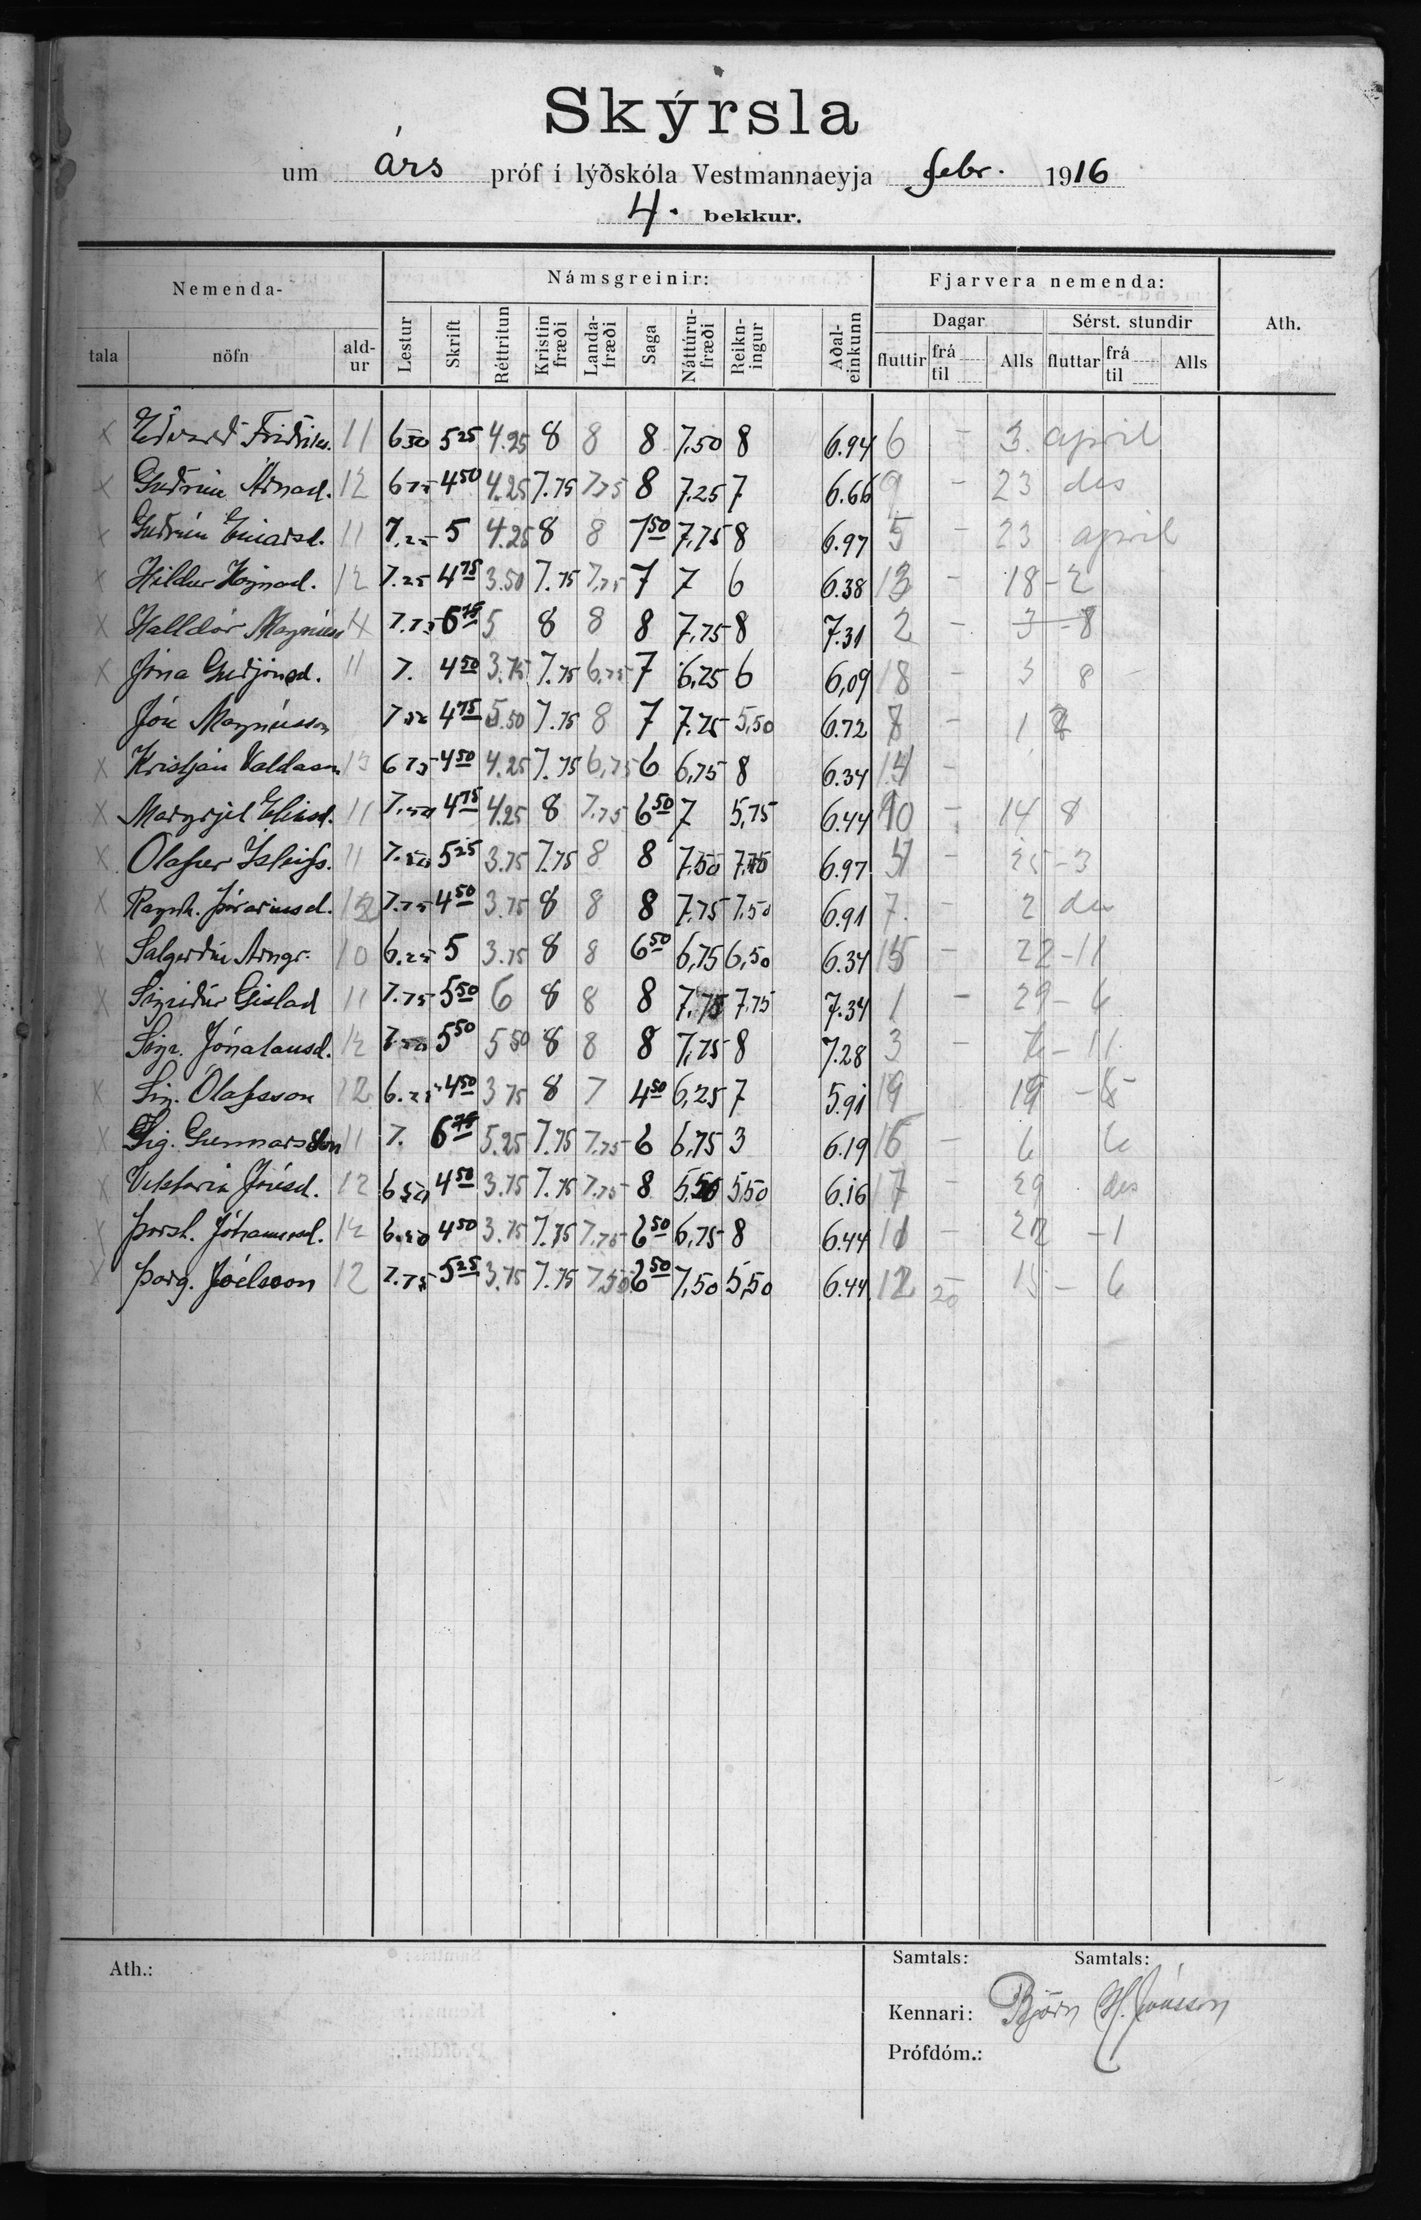 Skýrsla
um árs próf í lýðskóla Vestmannaeyja febr. 1916
4. bekkur.
Nemenda- Námsgreinir: Fjarvera nemenda: Ath.
Dagar Sérst. stundir
tala nöfn ald-ur Lestur Skrift Réttritun Kristin fræði Landa-fræði Saga Náttúru-fræði Reikn-ingur Aðal-einkunn fluttir frá til Alls fluttar frá til Alls
x Edvard Friðriks. 11 6.50 5.25 4.25 8 8 8 7.50 8 6.94 6 - 3. april
x Guðrún Árnad. 12 6.75 4.50 4.25 7.75 7.75 8 7.25 7 6.66 9 - 23 des
x Guðrún Einarsd. 11 7.25 5 4.25 8 8 7.50 7.75 8 6.97 5 - 23 april
x Hildur 12 7.25 4.75 3.50 7.75 7.75 7 7 6 6.38 13 - 18 - 2
x Halldór Magnúss 7.75 6.75 5 8 8 8 7.75 8 7.31 2 - 3 - 8
x Jóna Guðjónsd. 11 7. 4.50 3.75 7.75 6.75 7 6,25 6 6,09 18 - 3 8
Jón Magnússon 4.75 5.50 7.75 8 7 7.25 5,50 6.72 8 - 1
x Kristján Valdason 13 6.75 4.50 4.25 7.75 6,75 6 6,75 8 6.34 14 -
x Margrjet 11 7.50 4.75 4.25 8 7.75 6.50 7 5,75 6.44 10 - 14 8
x Ólafur Ísleifss. 11 7.50 5.25 3.75 7.75 8 8 7.50 7.75 6.97 - 25 - 3
x Ragnh. Þórarinsd. 7.75 4.50 3.75 8 8 8 7.75 7,50 6.91 7. - 2 des
x Salgerður Arngr. 10 6.25 5 3.75 8 8 6.50 6,75 6,50 6.34 15 - 22 - 11
x Sigríður Gíslad 11 7.75 5.50 6 8 8 8 7.75 7.75 7.34 1 - 29 - 6
Sigr. Jónatansd. 12 7.50 5.50 5.50 8 8 8 7,75 8 7.28 3 - - 11
x Sig. Ólafsson 12 6.25 4.50 3.75 8 7 4.50 6,25 7 5.91 19 19 - 8
x Sig. Gunnarsson 11 7. 6.75 5.25 7.75 7.75 6 6,75 3 6.19 16 - 6 6
x Viktoría Jónsd. 12 6.50 4.50 3.75 7.75 7.75 8 5.50 5,50 6.16 17 - 29 des
x Þorst. 12 6.50 4.50 3.75 7.75 7.75 6.50 6,75 8 6.44 11 - 22 - 1
x Þorg. Jóelsson 12 7.75 5.25 3.75 7.75 7,50 6.50 7,50 5,50 6.44 12 20 15 - 6
Ath.:
Samtals: Samtals:
Kennari: Björn H. Jónsson
Prófdóm.: